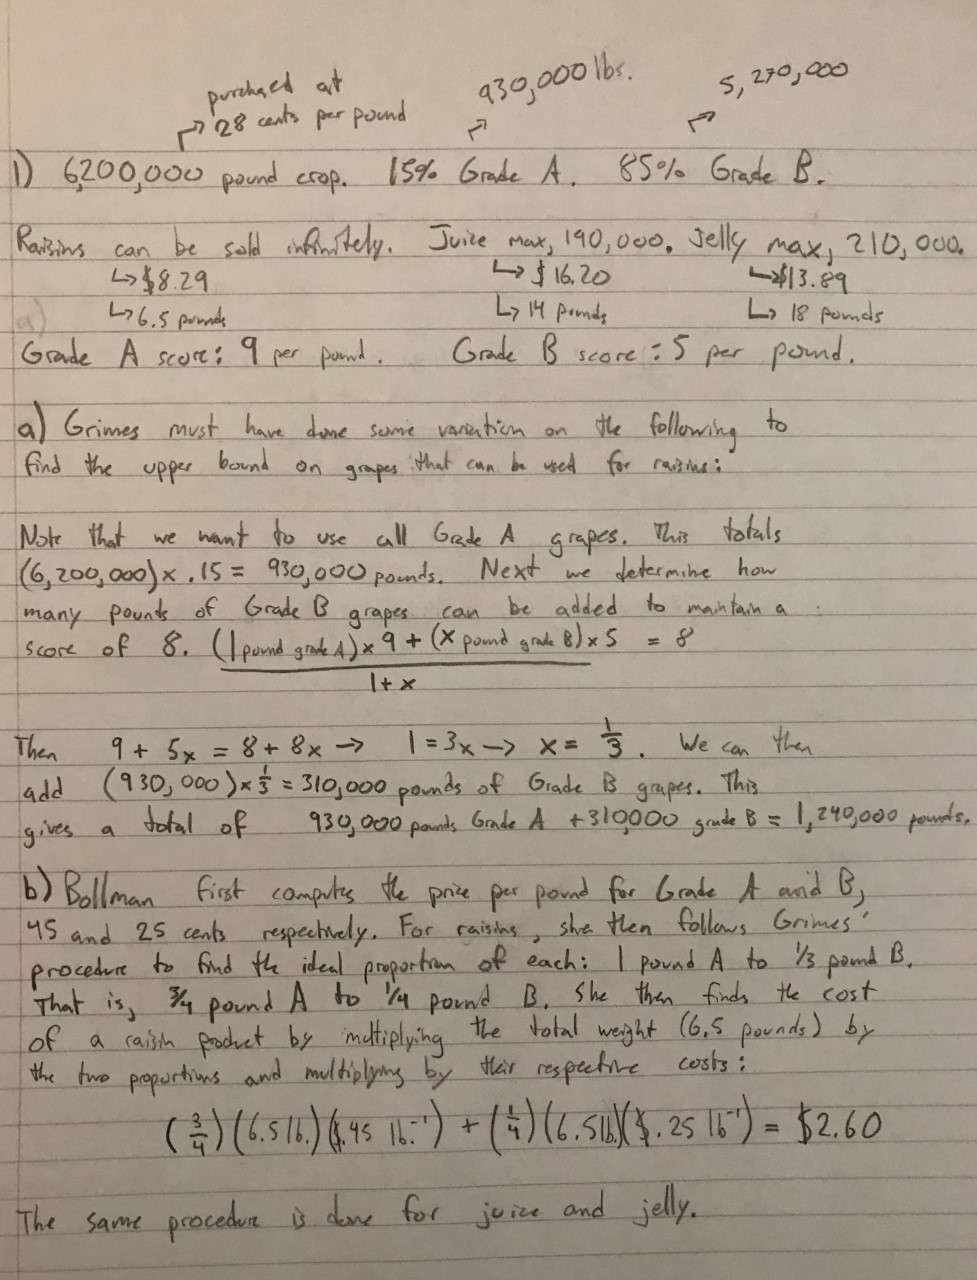 purchased at
28 cents per pound
930,000 lbs.
5,270,000
1) 6,200,000 pound crop. 15% Grade A. 85% Grade B.
Raisins can be sold infinitely. Juice max, 190,000. Jelly max, 210,000.
↳ $8.29 ↳ $16.20 ↳ $13.89
↳ 6.5 pounds ↳ 14 pounds ↳ 18 pounds
Grade A score: 9 per pound. Grade B score: 5 per pound.
a) Grimes must have done some variation on the following to
find the upper bound on grapes that can be used for raisins:
Note that we want to use all Grade A grapes. This totals
(6,200,000) x .15 = 930,000 pounds. Next we determine how
many pounds of Grade B grapes can be added to maintain a
score of 8. (1 pound grade A) x 9 + (x pound grade B) x 5 = 8
1 + x
Then 9 + 5x = 8 + 8x → 1 = 3x → x = 1/3. We can then
add (930,000) x 1/3 = 310,000 pounds of Grade B grapes. This
gives a total of 930,000 pounds Grade A + 310,000 grade B = 1,240,000 pounds.
b) Bollman first computes the price per pound for Grade A and B,
45 and 25 cents respectively. For raisins, she then follows Grimes'
procedure to find the ideal proportion of each: 1 pound A to 1/3 pound B.
That is, 3/4 pound A to 1/4 pound B. She then finds the cost
of a raisin product by multiplying the total weight (6.5 pounds) by
the two proportions and multiplying by their respective costs:
(3/4)(6.5 lb.)($.45 lb.⁻¹) + (1/4)(6.5 lb.)($.25 lb⁻¹) = $2.60
The same procedure is done for juice and jelly.